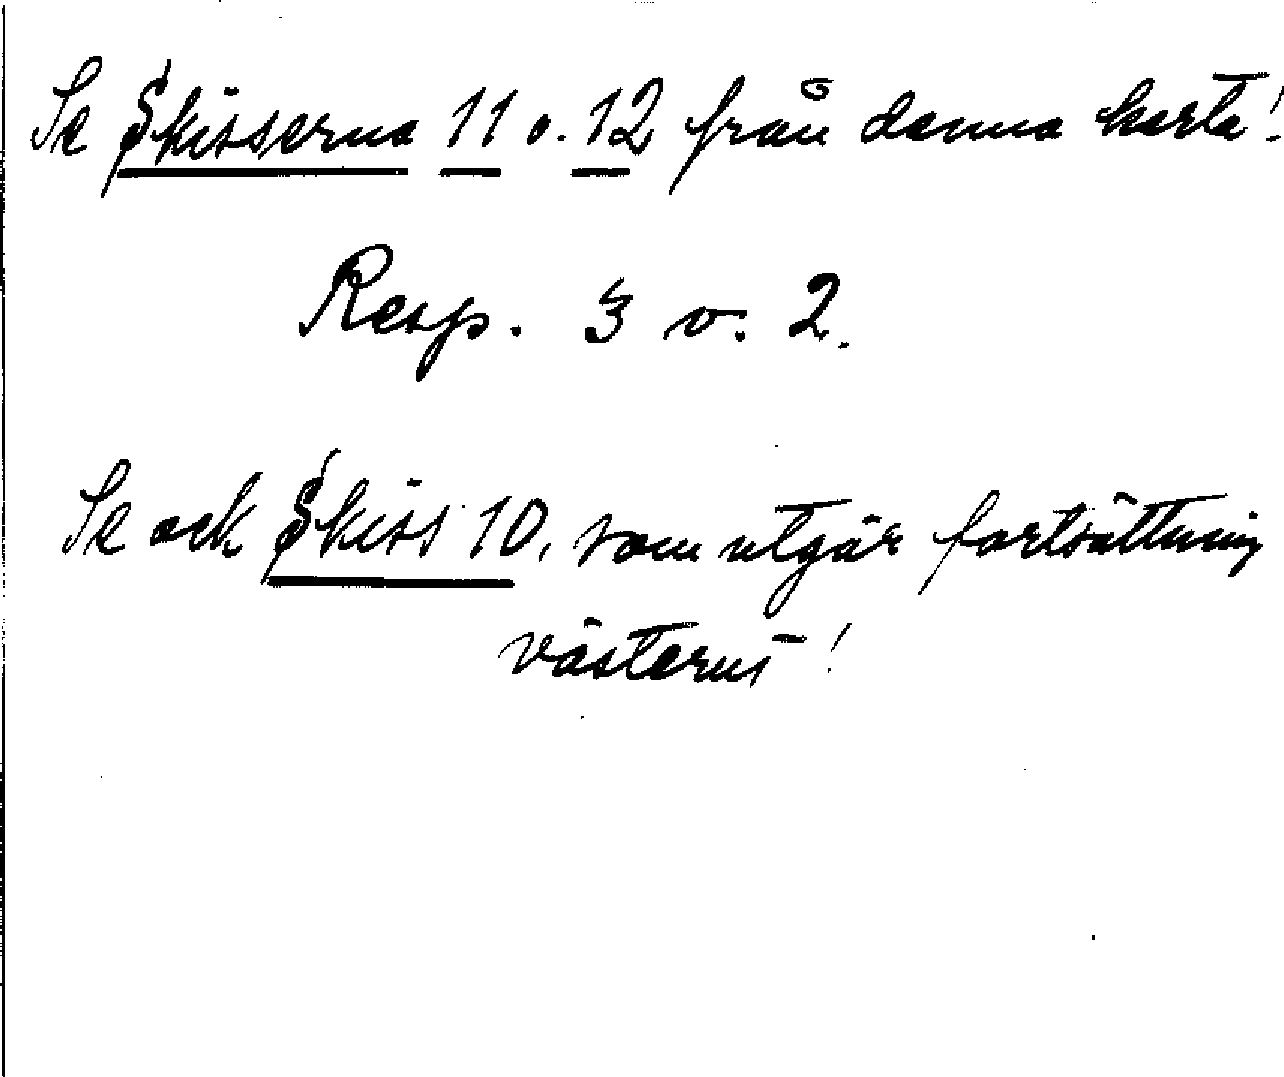 Se Skisserna 11 o. 12 från denna karta!
Resp. 3 o. 2.
Se ock Skiss 10, som utgör fortsättning
västerut!